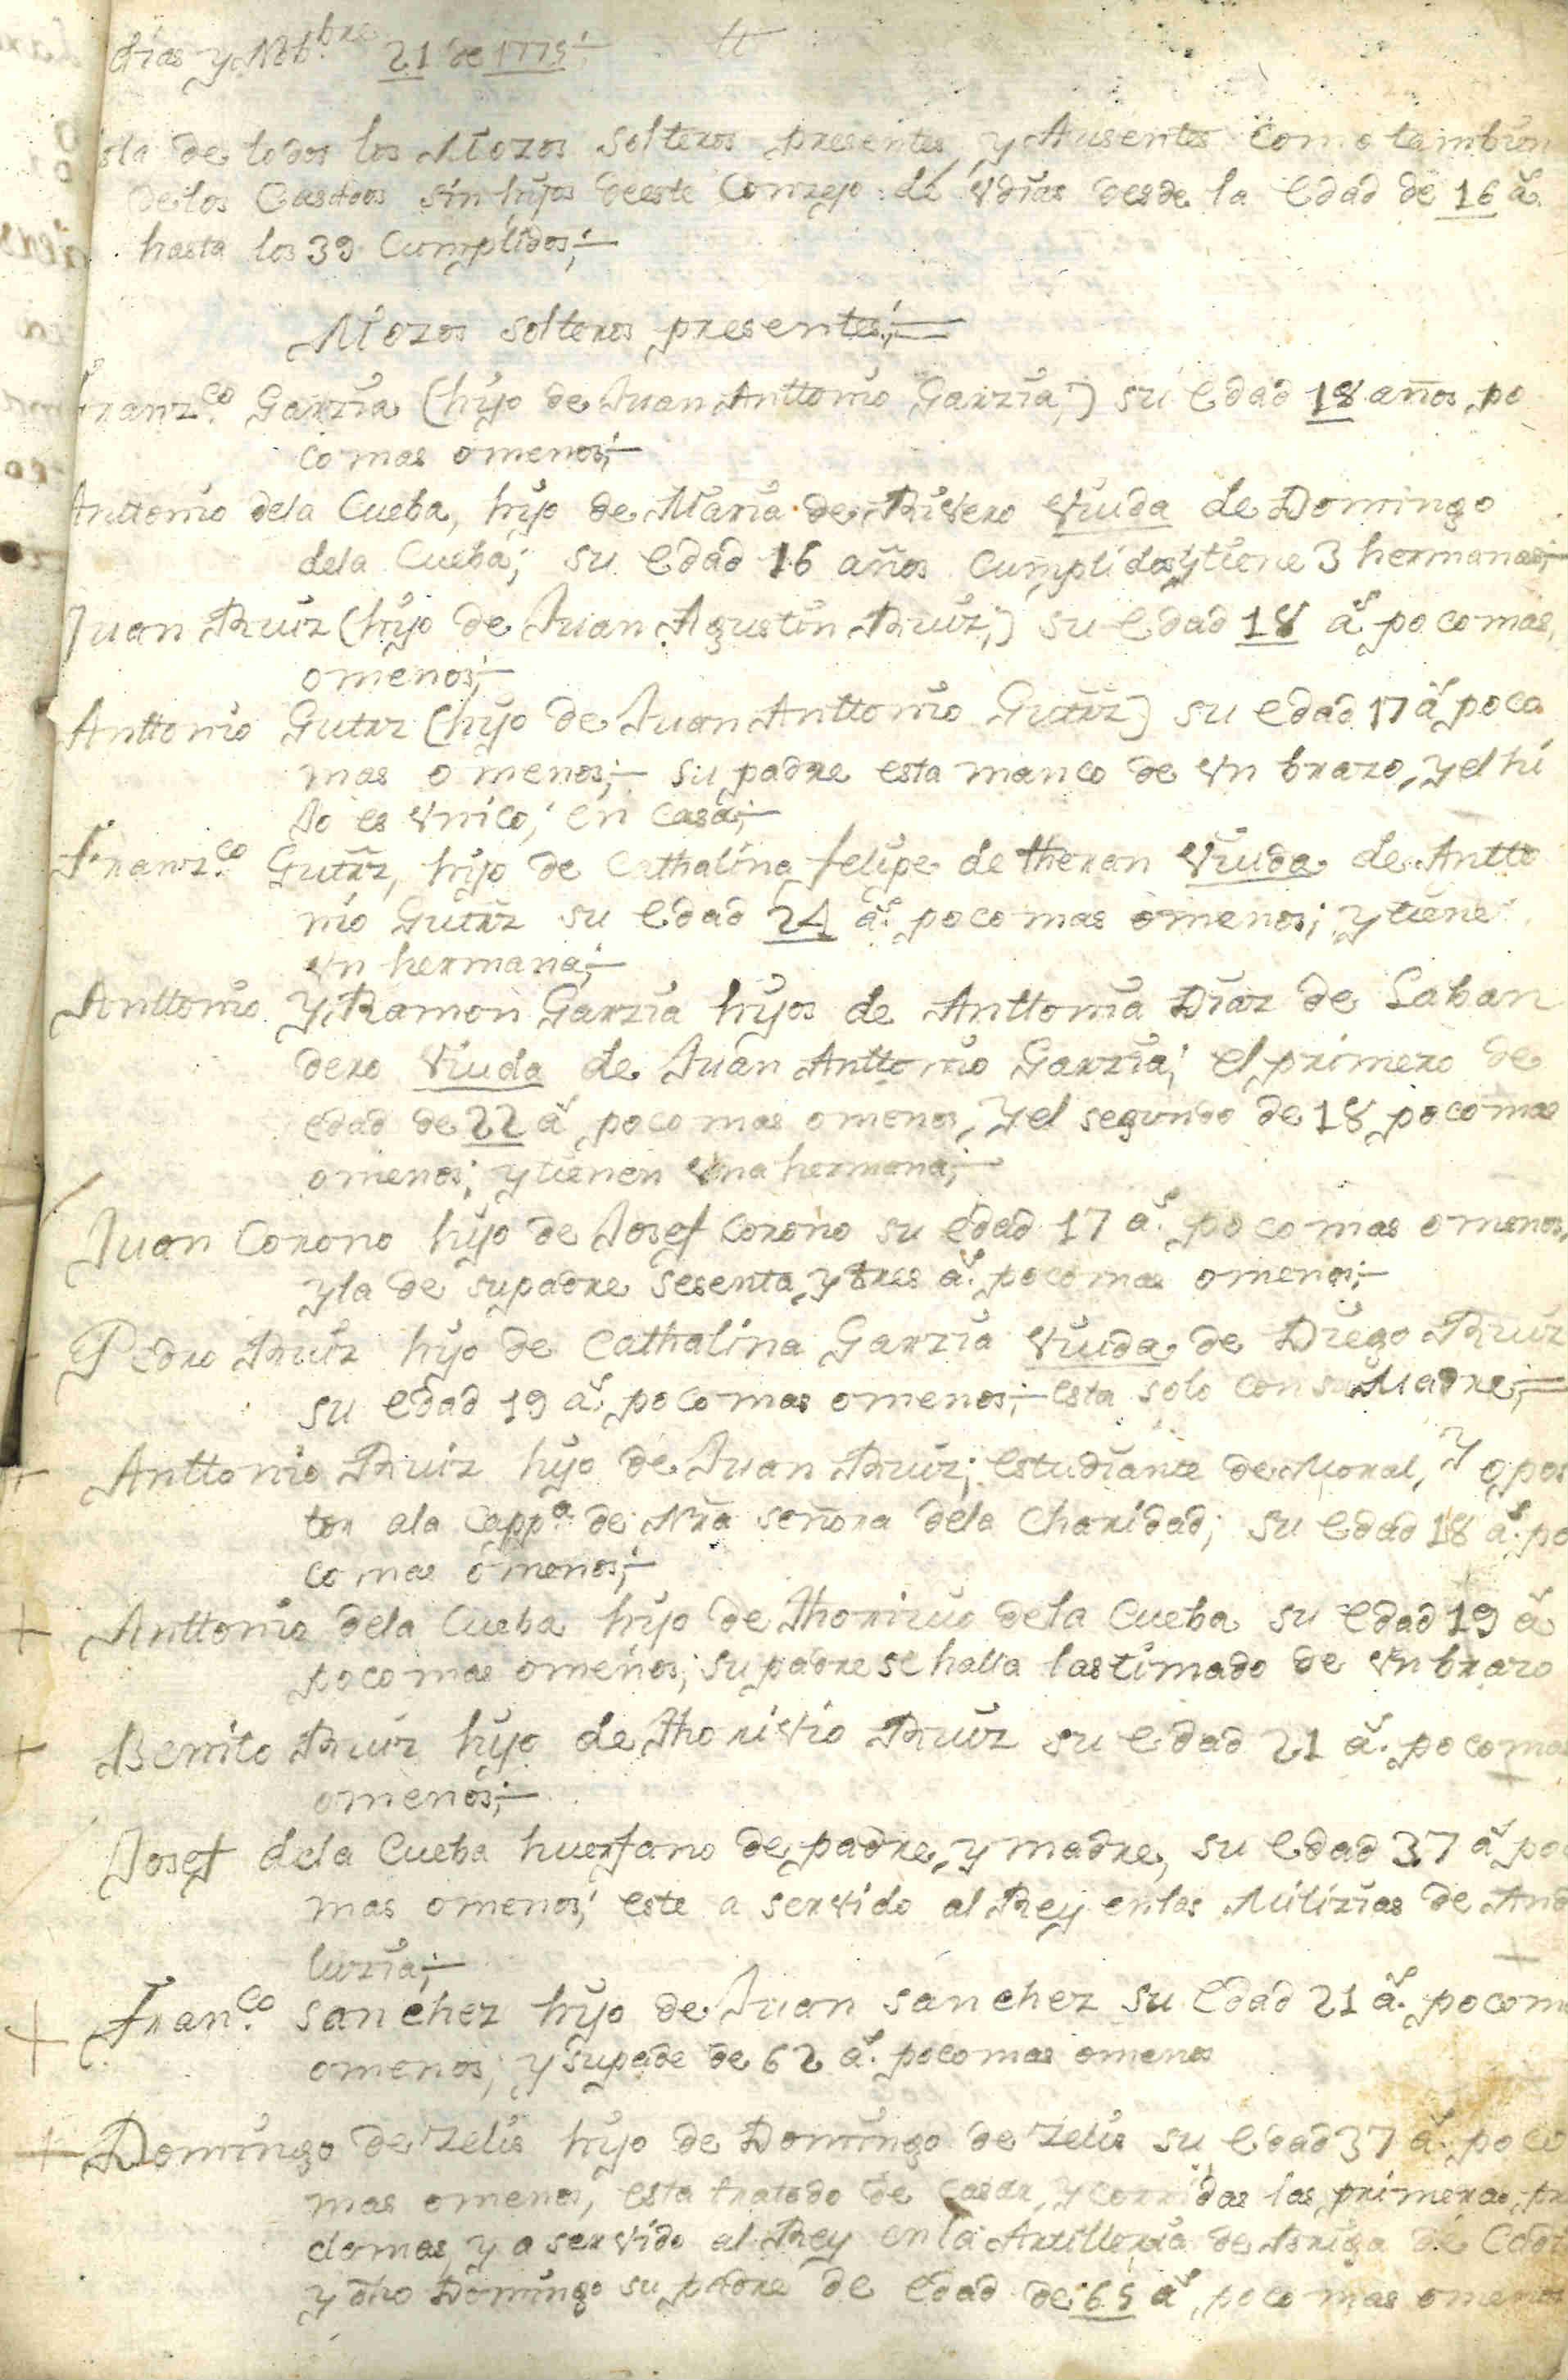 dias y Nob.bre 21 de 1775;
sta de todos los Mozos solteros presentes, y Ausentes como tambien
de los Casados sin hijos deeste Conzejo de Vdias desde la edad de 16 a.s
hasta los 39 Cumplidos;
Mozos solteros presentes;
Franz.co Garzia (hijo de Juan Anttonio Garzia;) su edad 18 años po
co mas o menos;
Anttonio dela Cueba, hijo de Maria de Rivero Viuda de Domingo
dela Cueba; su edad 16 años cumplidos y tiene 3 hermanas;
Juan Ruiz (hijo de Juan Agustin Ruiz;) su edad 18 a.s poco mas,
o menos;
Anttonio Gutrz (hijo de Juan Anttonio Gutrrz) su edad 17 a.s poco
mas o menos; su padre esta manco de vn brazo, y el hi
Jo es vnico; en casa;
Franz.co Gutrrz, hijo de Cathalina felipe de theran Viuda de Antto
nio Gutrrz su edad 24 a.s poco mas o menos; y tiene
vn hermana;
Anttonio y Ramon Garzia hijos de Anttonia Diaz de Laban
dero Viuda de Juan Anttonio Garzia; el primero de
edad de 22 a.s poco mas o menos, y el segundo de 18 poco mas
o menos; y tienen vna hermana;
Juan Corono hijo de Josef Corono su edad 17 a.s poco mas o menos,
y la de su padre sesenta, y tres a.s poco mas o menos;
Pedro Ruiz hijo de Cathalina Garzia Viuda de Diego Ruiz
su edad 19 a.s poco mas o menos; esta solo con su Madre;
Anttonio Ruiz hijo de Juan Ruiz; estudiante de Moral, y opos
tor ala Capp.a de Nra señora dela Charidad; su edad 18 a.s po
co mas o menos;
Anttonio dela Cueba hijo de Thorivio dela Cueba su edad 19 a.s
poco mas o menos; su padre se halla lastimado de vn brazo
Benito Ruiz hijo de Thorivio Ruiz su edad 21 a.s poco ma
o menos;
Josef dela Cueba huerfano de padre, y madre, su edad 37 a.s po
mas o menos; este a servido al Rey en las Milizias de And
luzia;
Fran.co sanchez hijo de Juan sanchez su edad 21 a.s poco m
o menos; y su pade de 62 a.s poco mas o menos
Domingo de Zelis hijo de Domingo de Zelis su edad 37 a.s poco
mas o menos, esta tratado de casar, y corridas las primeras pr
clamas, y a servido al Rey en la Artilleria de Briga de Cadi
y dho Domingo su padre de edad de 65 a.s poco mas o menos